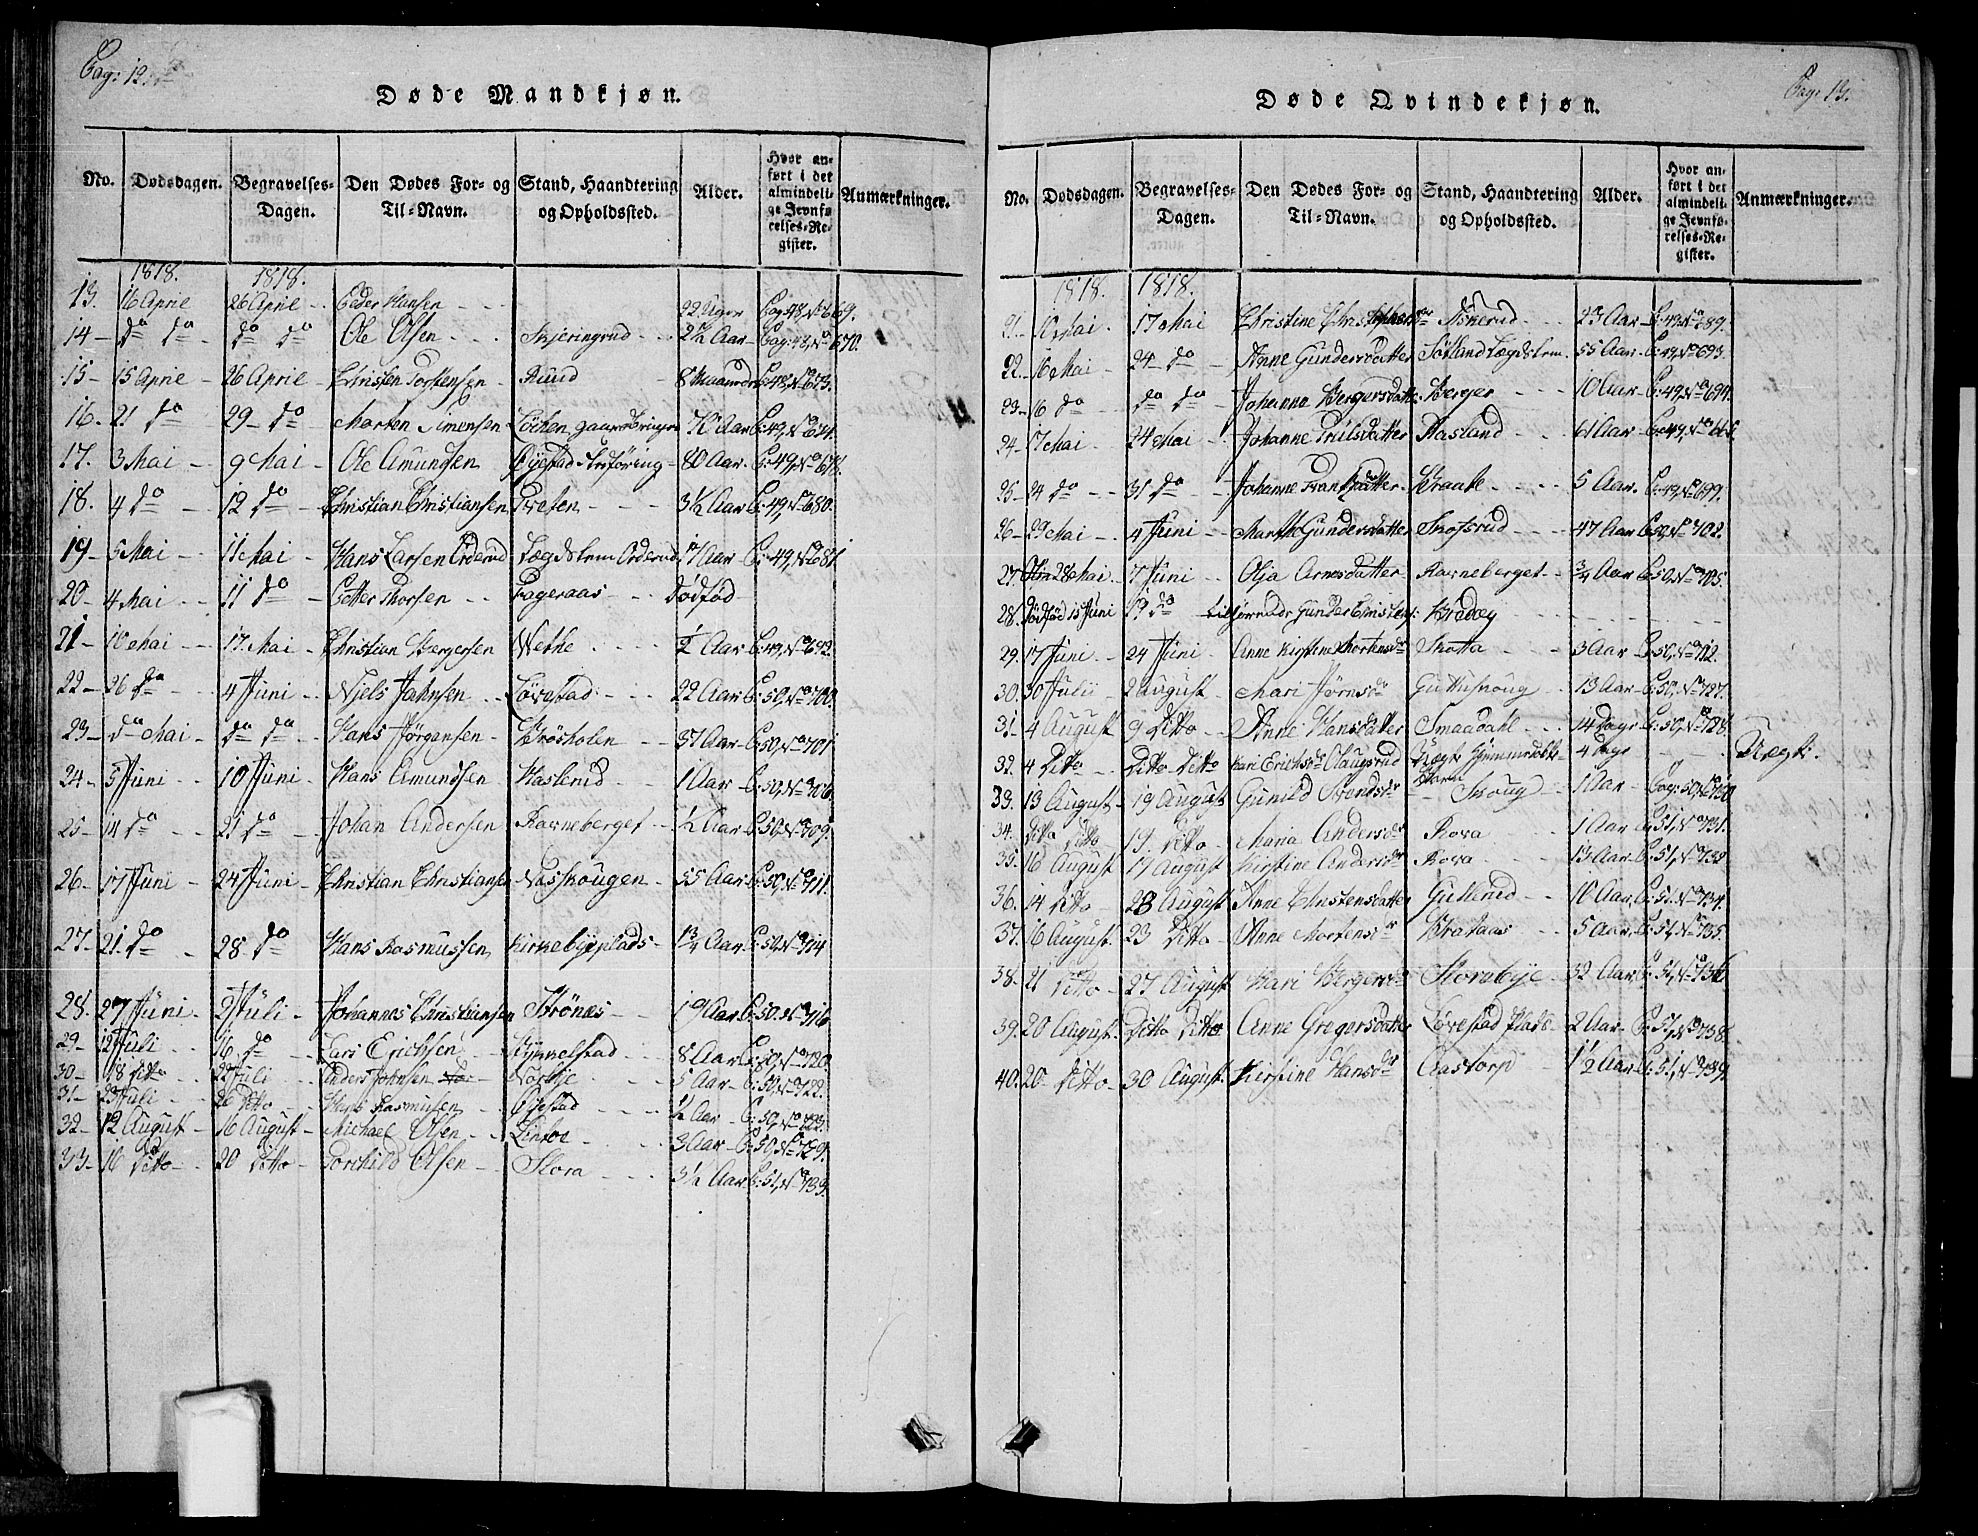 Pag: 12.
Døde Mandkjøn.
No. Dødsdagen. Begravelses-Dagen. Den Dødes For- og Til-Navn. Stand, Haandtering og Opholdssted. Alder. Hvor anført i det almindelige Jevnførelses-Register. Anmærkninger.
1818. 1818.
13. 16 April 26 April Peder Hansen 22 Uger Pag: 48, No 669.
14 do do do do Ole Olsen Skjeringrud 2½ Aar Pag: 48, No 670.
15 15 April 26 April Christen Torstensen Ruud 8 Maaneder P: 48, No 673.
16. 21 do 29 do Morten Simensen Löchen 70 Aar P: 49, No
17. 3 Mai 9 Mai Ole Amundsen Öyestad 80 Aar P: 49, No 678.
18. 4 do 12 do Christian Christiansen Presen 3½ Aar P: 49, No 680.
19 5 Mai 11 Mai Hans Larsen Orderud Lægdslem Orderud 17 Aar P: 49, No 681
20 4 Mai 11 do Petter Thorsen Fageraas dödfød
21 10 Mai 17. Mai Christian Bergersen Nethe ½ Aar P: 49, No 692.
22 26 do 4 Juni Niels Johnsen Lövestad 22 Aar P: 50, No 700.
23 do Mai do do Hans Jörgensen Brösholen 37 Aar P: 50, No 701
24 5 Juni 10 Juni Hans Amundsen Haslerud 1 Aar P: 50, No 706.
25 14 do 21 do Johan Andersen Ravneberget ½ Aar P: 50, No 709.
26 17 Juni 24 Juni Christian Christiansen Naskougen 55 Aar P: 50, No 711.
27 21. do 28 do Hans Rasmussen Kirkebyeplads 1¾ Aar P: 50, No 714
28. 27 Juni 2 Juli Johannes Christiansen Strönæs 19 Aar P: 50. No 716
29 12 Juli 16 do Lars Erichsen Kykkelstad 8 Aar P: 50, No 720.
30 18 Ditto 22 Juli Anders Johnsen Norbye 5 Aar P: 50, No 722.
31 23 Juli 26 Ditto Hans Rasmusen Öiestad ½ Aar P: 50, No 723.
32 12 August 16 August Michael Olsen Lintoe 3 Aar P: 50, No 729.
33 16 Ditto 20 Ditto Torchild Olsen Flora 3½ Aar P: 51, No 733.
Pag: 13.
Døde Qvindekjøn.
No. Dødsdagen. Begravelses-Dagen. Den Dødes For- og Til-Navn. Stand, Haandtering og Opholdssted. Alder. Hvor anført i det almindelige Jevnførelses-Register. Anmærkninger.
1818. 1818.
21. 10 Mai. 17 Mai Christine Christophersdr Askerud 23 Aar P: 49, No 689.
22. 16 Mai 24 do Anne Gundersdatter Sötland Lægdslem. 55 Aar P: 49, No 693.
23 16 do do do Johanne Bergersdatter Berger 10 Aar P: 49, No 694.
24 17 Mai 24 Mai Johanne Truilsdatter Aasland 61 Aar P: 49, No
25 24 do 31 do Johanne Frantzdatter Braate 5 Aar. P: 49, No 699.
26 29 Mai 4 Juni Marthe Gundersdatter Skofsrud 47 Aar P: 50, No 702.
27 28 Mai 7 Juni Olja Arnesdatter Ravneberget ¾ Aar P: 50, No 705.
28. Dödfød 15 Juni 19 do Gunder Christens: Bredvey
29. 17 Juni 24 Juni Anne Kirstine Mortensdr Skotta 3 Aar P: 50, No 712.
30. 30 Julii 2 August Mari Jörnsdr Guttuskoug 13 Aar P: 50, No 727.
31 4 August 9 Ditto Anne Hansdatter Smaadahl 14 Dage P: 50, No 728.
32. 4 Ditto Ditto Ditto Kari Erichsdr Haugsrud 4 dage Uægt:
33. 13 August 19 August Gunild Svendsdr Skoug 1 Aar Pag: 50, No 730
34. Ditto Ditto 19. Ditto Maria Andersdr Rova 1 Aar P: 51, No 731.
35. 16 August 17 August Kirstine Andersdr Rova 13 Aar P: 51, No 732
36. 14 Ditto 28 August Anne Christensdatter Gullerud 10 Aar P: 51. No 734.
37. 16 August. 23 Ditto Anne Mortensdr Brataas 5 Aar P: 51, No 735.
38. 21 Ditto 27 August Kari Bergersdr Storebye 32 Aar P: 51, No 736
39. 20 August. Ditto Ditto Anne Gregersdatter Lövestad Plads 2 Aar P: 51, No 738.
40. 20 Ditto 30 August. Kirstine Hansdr Aastorp 1½ Aar P: 51, No 739.